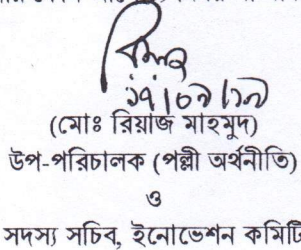 ১৭/০৯/১৯
(মোঃ রিয়াজ মাহমুদ)
উপ-পরিচালক (পল্লী অর্থনীতি)
ও
সদস্য সচিব, ইনোভেশন কমিটি